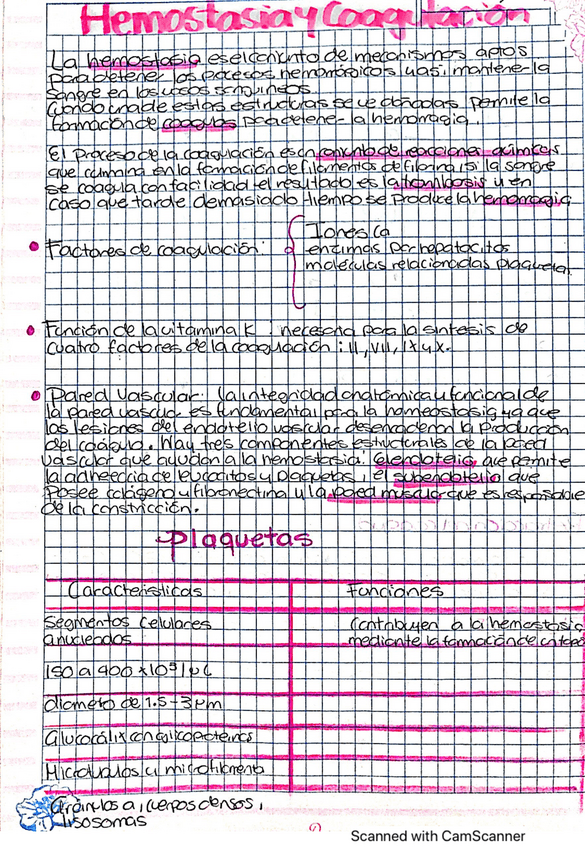 Hemostasia y Coagulación
La hemostasia es el conjunto de mecanismos aptos
para detener los procesos hemorrágicos y asi, mantener la
sangre en los vasos sanguineos.
Cuando una de estas estructuras se ve dañadas, permite la
formación de coagulos para detener la hemorragia.
El Proceso de la coagulación es un conjunto de reacciones quimicas
que culmina en la formación de filamentos de fibrina, si la sangre
se coagula con facilidad el resultado es la trombosis y en
caso que tarde demasiado tiempo se produce la hemorragia
Factores de coagulación:
Iones Ca
enzimas por hepatocitos
moléculas relacionadas plaqueta.
Función de la vitamina K : necesaria para la sintesis de
cuatro factores de la coagulación : II, VII, IX y X.
Pared Vascular: La integridad anatómica y funcional de
la pared vascular es fundamental para la homeostasis ya que
las lesiones del endotelio vascular desencadenan la producción
del coágulo. Hay tres componentes estructurales de la pared
vascular que ayudan a la hemostasia. el endotelio que permite
la adherencia de leucocitos y plaquetas, el subendotelio que
Posee colágeno y fibronectina y la pared muscular que es responsable
de la constricción.
Plaquetas
Caracteristicas Funciones
Segmentos Celulares Contribuyen a la hemostasia
anucleados mediante la formación de
150 a 400 x10³/µL
diametro de 1.5-3µm
Glucocálix con glicoproteinas
Microtubulos y microfilamento
Gránulos a, cuerpos densos,
lisosomas
Scanned with CamScanner